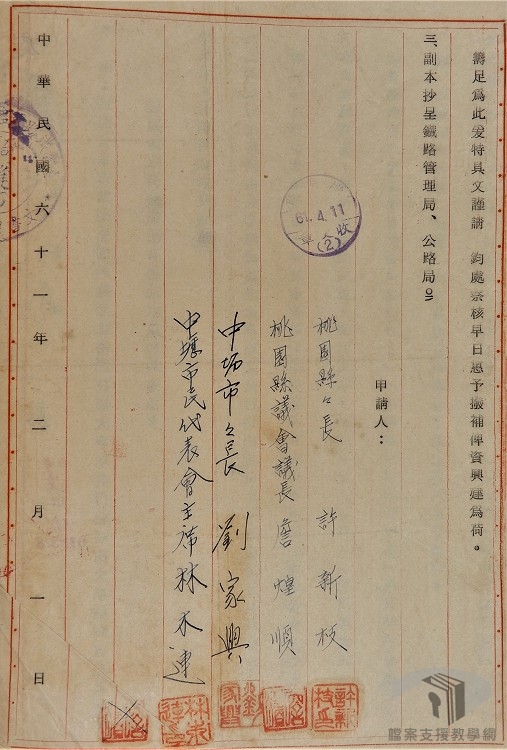 壽足為此爰特具文謹請　鈞處察核早日惠予撥補俾資興建為荷。
三、副本抄呈鐵路管理局、公路局。
申請人：
桃園縣々長　許新枝
桃園縣議會議長　詹煌順
中坜市々長　劉家興
中壢市民代表會主席林木連
中華民國六十一年二月一日
61.4.11
收
(2)
許新枝印
檔案支援教學網